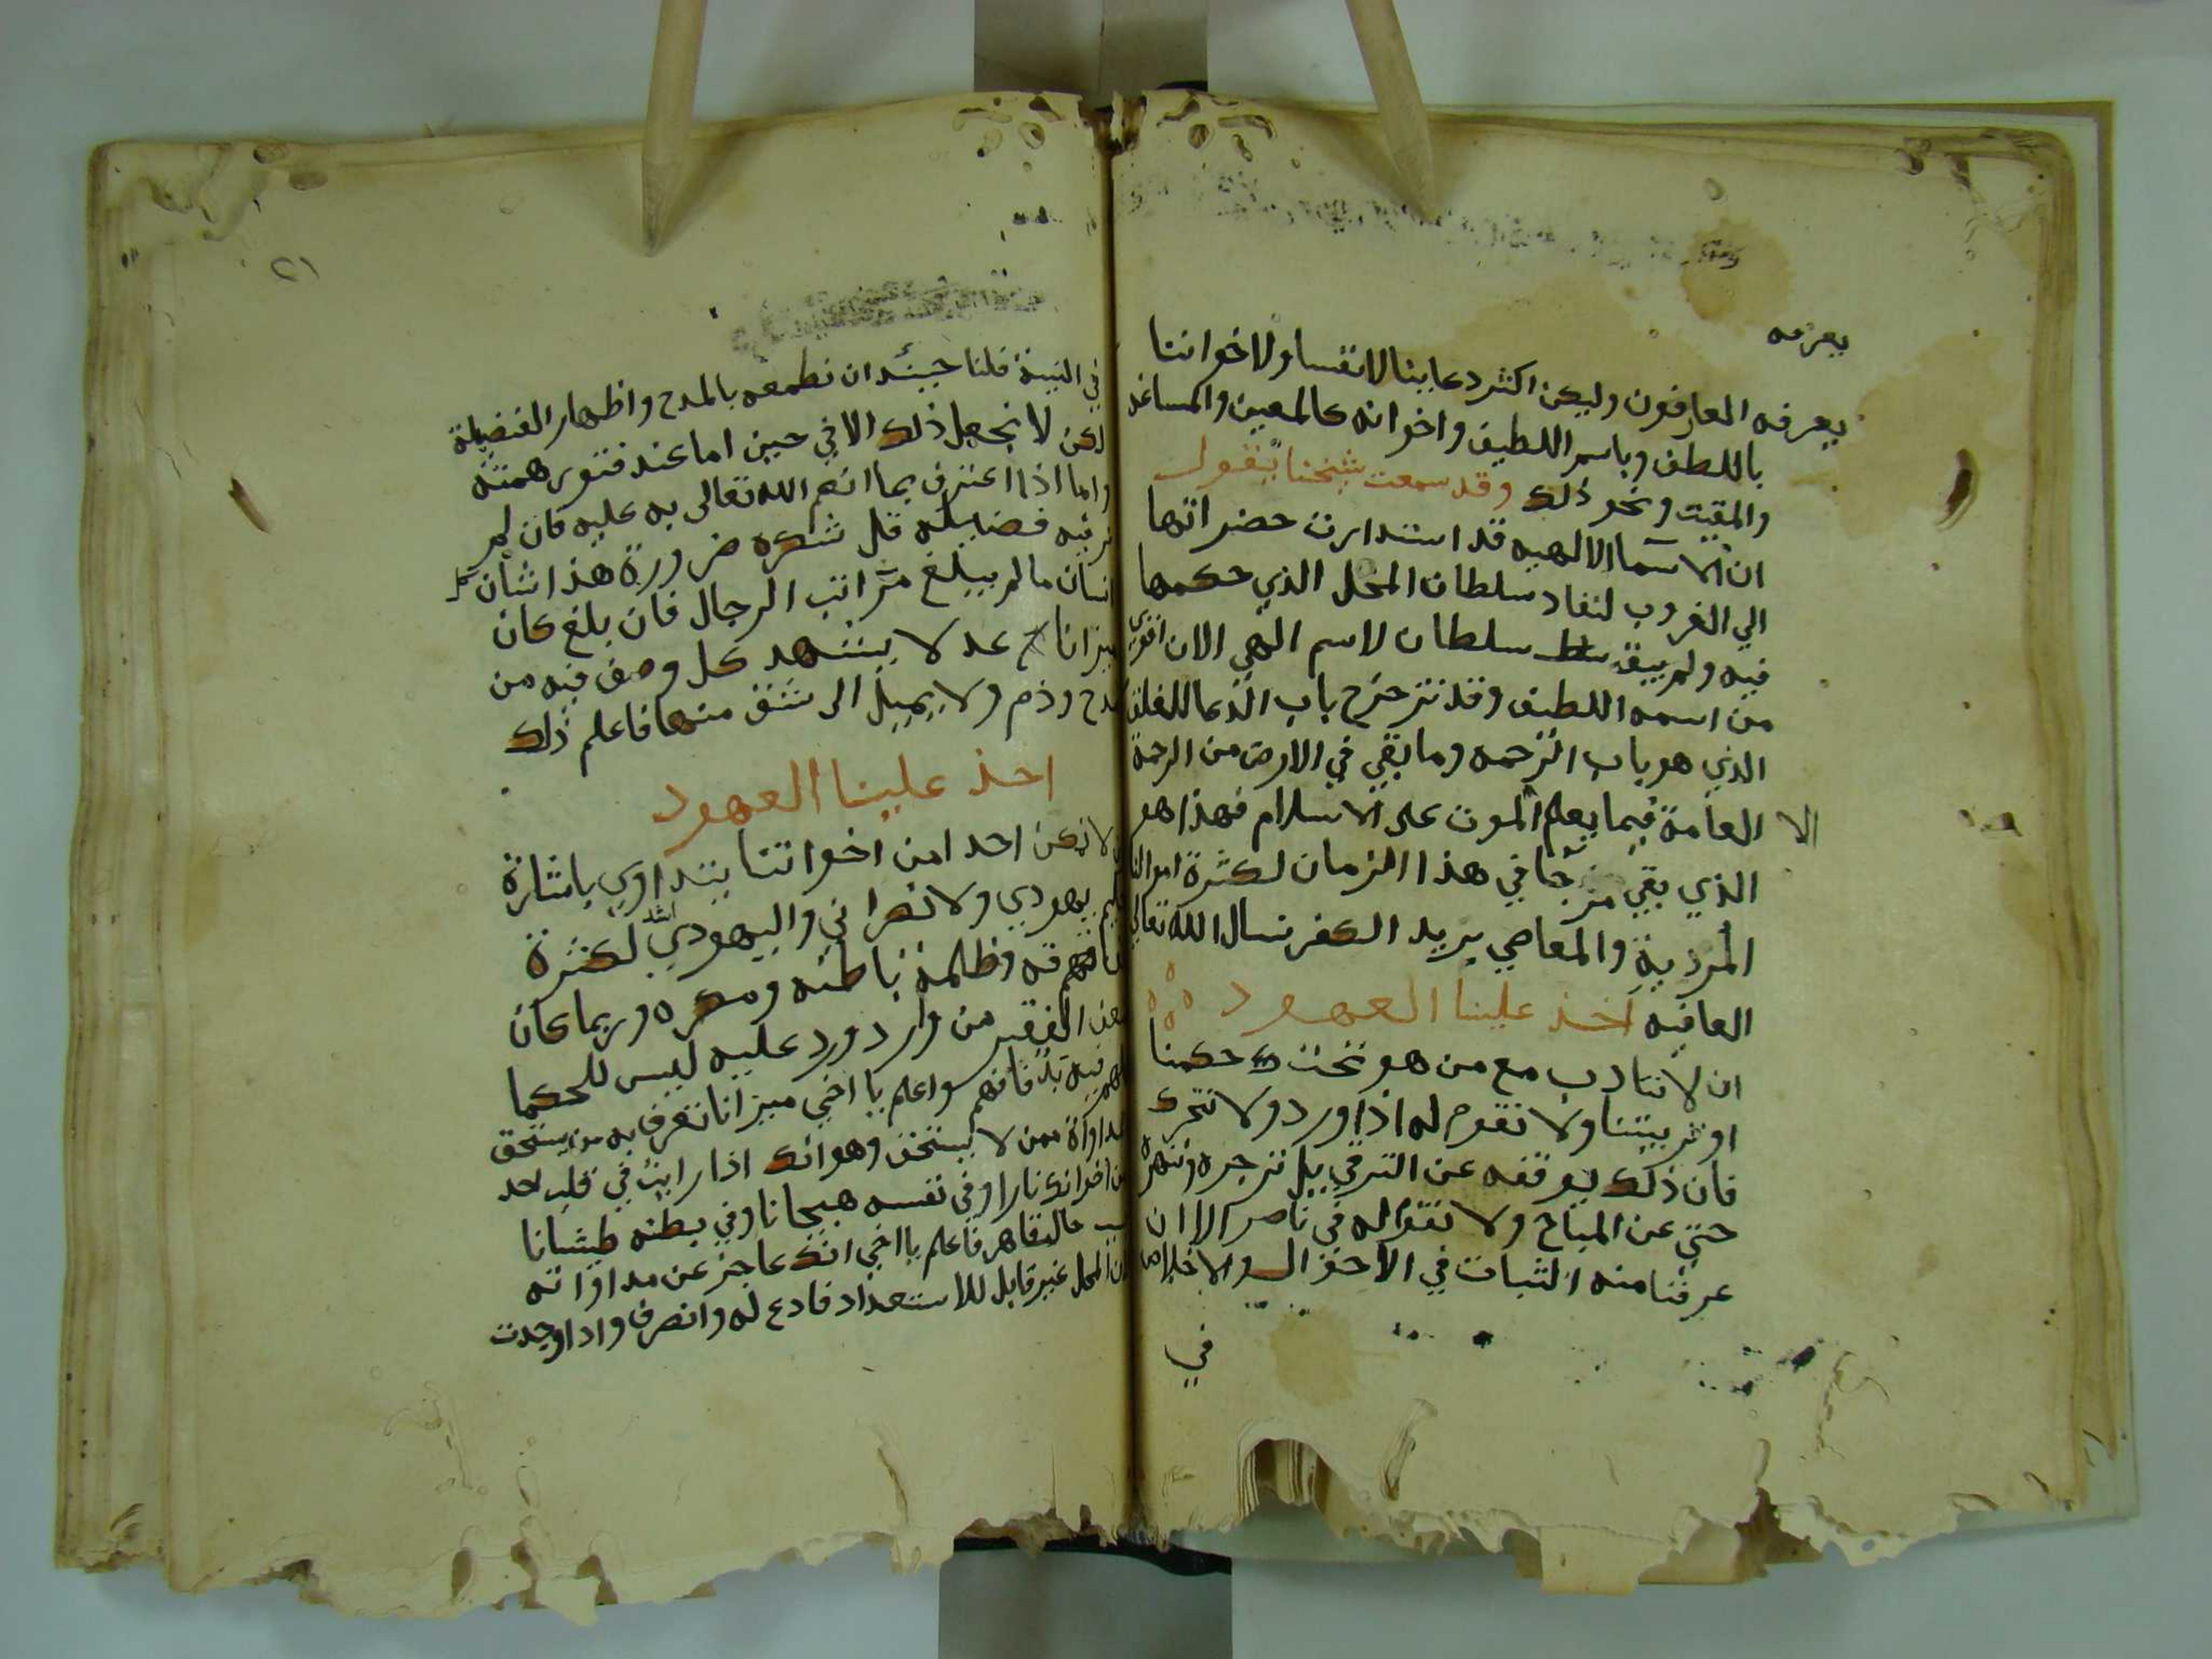 يعرفه
يعرفه العارفون وليكن اكثر دعاينا لانفسنا ولاخواننا
باللطف وباسمه اللطيف واخوانه كالمعين والمساعد
والمقيت ونحو ذلك وقد سمعت شيخنا يقول
ان الاسما الالهيه قد استدارت حضراتها
الي الغروب لنفاد سلطان المحل الذي حكمها
فيه ولم يبق سلطان لاسم الهي الان اقوي
من اسمه اللطيف وقد تزحزح باب الدعا للغلق
الذي هو باب الرحمه وما بقي في الارض من الرحمة
الا العامة فيما يعلم الموت على الاسلام فهذا هو
الذي بقي مرجا في هذا الزمان لكثرة اموالنا
المردية والمعاصي بريد الكفر نسال الله تعالي
العافيه اخذ علينا العهود
ان لا نتادب مع من هو تحت حكمنا
او تربيتنا ولا نقوم له اذا ورد ولا نتحرك
فان ذلك يوقفه عن الترقي بل نزجره وننهره
حتي عن المباح ولا نقواله في ناصر الا ان
عرفنا منه الثبات في الاحوال والاخلاص
في
٢١
في النية فلنا حينئذ ان نطمعه بالمدح واظهار الفضيلة
لكن لا نجعل ذلك الا في حين اما عند فتور همته
واما اذا اعترف بما انعم الله تعالى به عليه فان لم
فيه فضايله قل شكره ضرورة هذا شان كل
انسان ما لم يبلغ مراتب الرجال فان بلغ كان
ميزانا عدلا يشهد كل وصف فيه من
مدح وذم ولا يميل الى شق منها فاعلم ذلك
اخذ علينا العهود
لا نمكن احدا من اخواننا يتداوي باشارة
حكيم يهودي ولا نصراني واليهودي اشد لكثرة
وظلمة باطنه ومكره وربما كان
الفقير من وارد ورد عليه ليس للحكما
فيه يد فانهم واعلم يا اخي ميزانا تعرف به من يستحق
المداواة ممن لا يستحق وهو انك اذا رايت في قلب احد
من اخوانك نارا وفي نفسه هيجانا وفي بطنه طيشانا
فاعلم يا اخي انك عاجز عن مداواته
المحل غير قابل للاستعداد فادع له وانصرف واذا وجدت